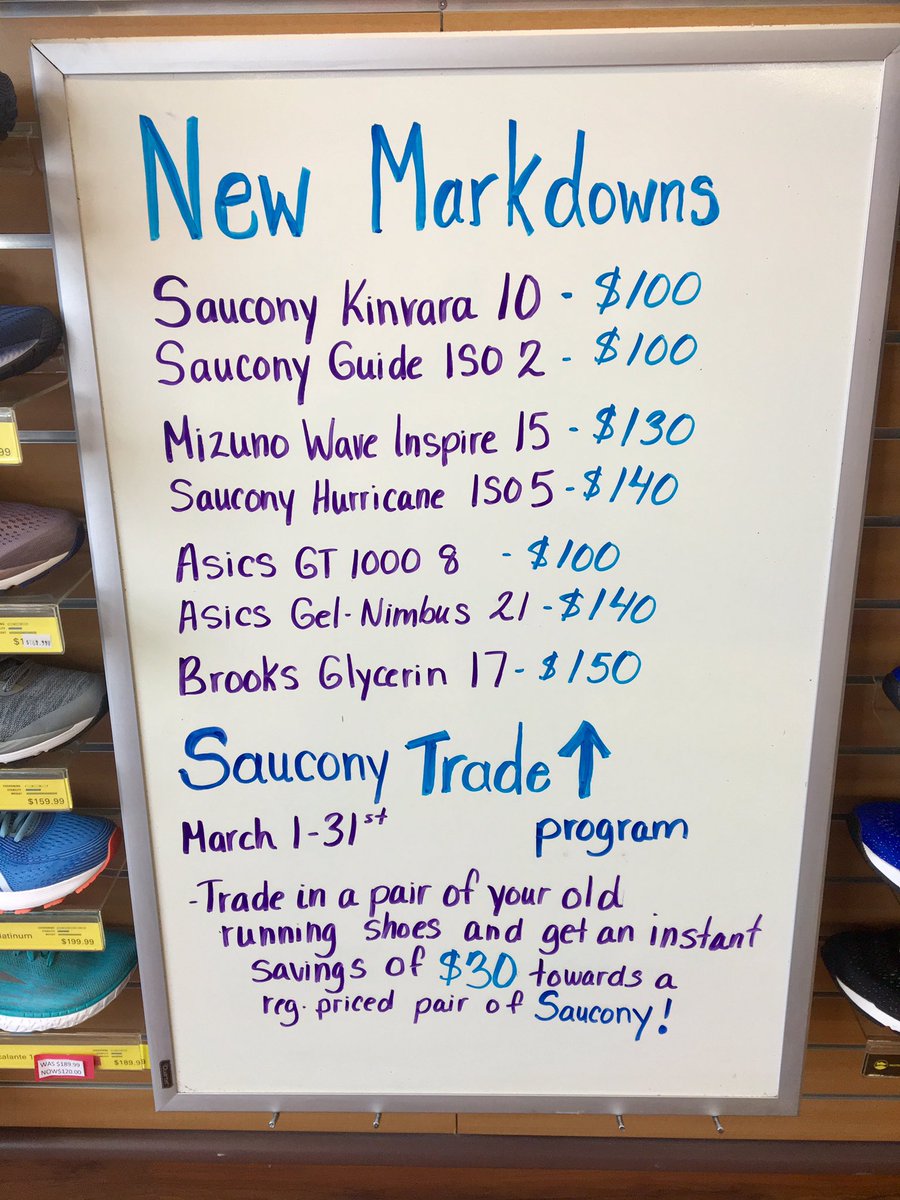 New Markdowns
Saucony Kinvara 10 - $100
Saucony Guide ISO 2 - $100
Mizuno Wave Inspire 15 - $130
Saucony Hurricane ISO 5 - $140
Asics GT 1000 8 - $100
Asics Gel-Nimbus 21 - $140
Brooks Glycerin 17 - $150
Saucony Trade ↑
March 1-31st program
- Trade in a pair of your old
running shoes and get an instant
savings of $30 towards a
reg. priced pair of Saucony!
$159.99
$199.99
WAS $189.99
NOW $120.00
$189.99